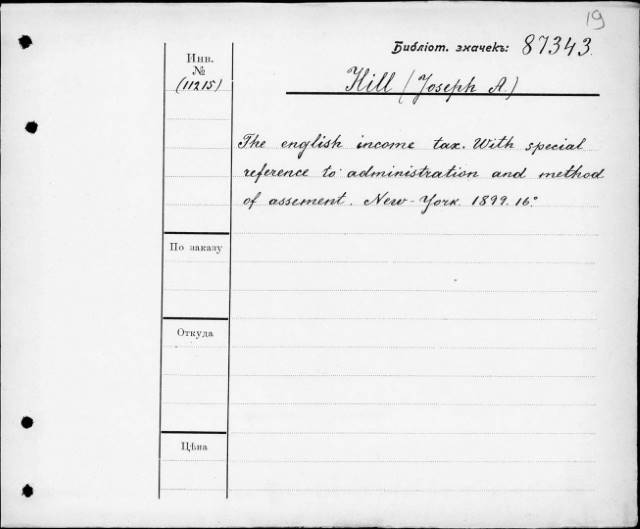 19
Библіот. значекъ: 87343.
Инв.
№
(11215)
Hill (Joseph A.)
The english income tax. With special
reference to administration and method
of assement. New-York. 1899. 16º
По заказу
Откуда
Цѣна